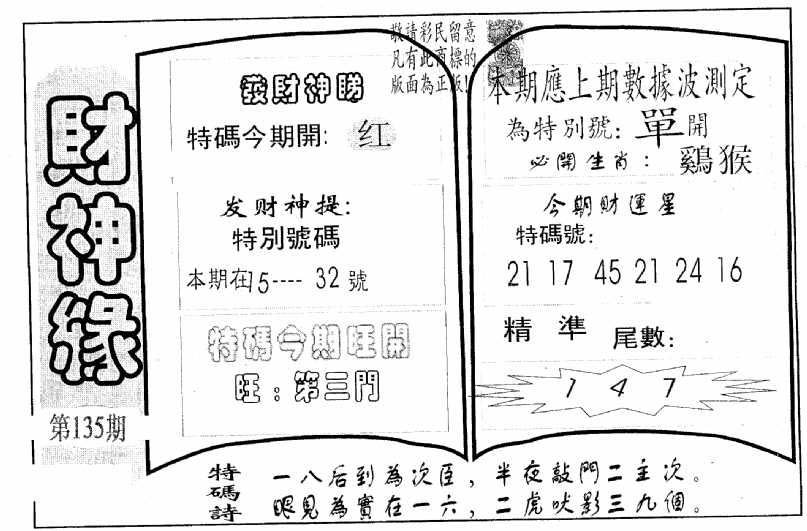 財神緣
第135期
敬請彩民留意
凡有此商標的
版面為正版!
發財神睇
特碼今期開: 红
发财神提:
特別號碼
本期在15---- 32 號
特碼今期旺開
旺:第三門
本期應上期數據波測定
為特別號: 單開
必開生肖: 鷄猴
今期财運星
特碼號:
21 17 45 21 24 16
精準 尾數:
1 4 7
特碼詩
一八后到為次臣,半夜敲門二主次。
眼見為實在一六,二虎吠影三九個。